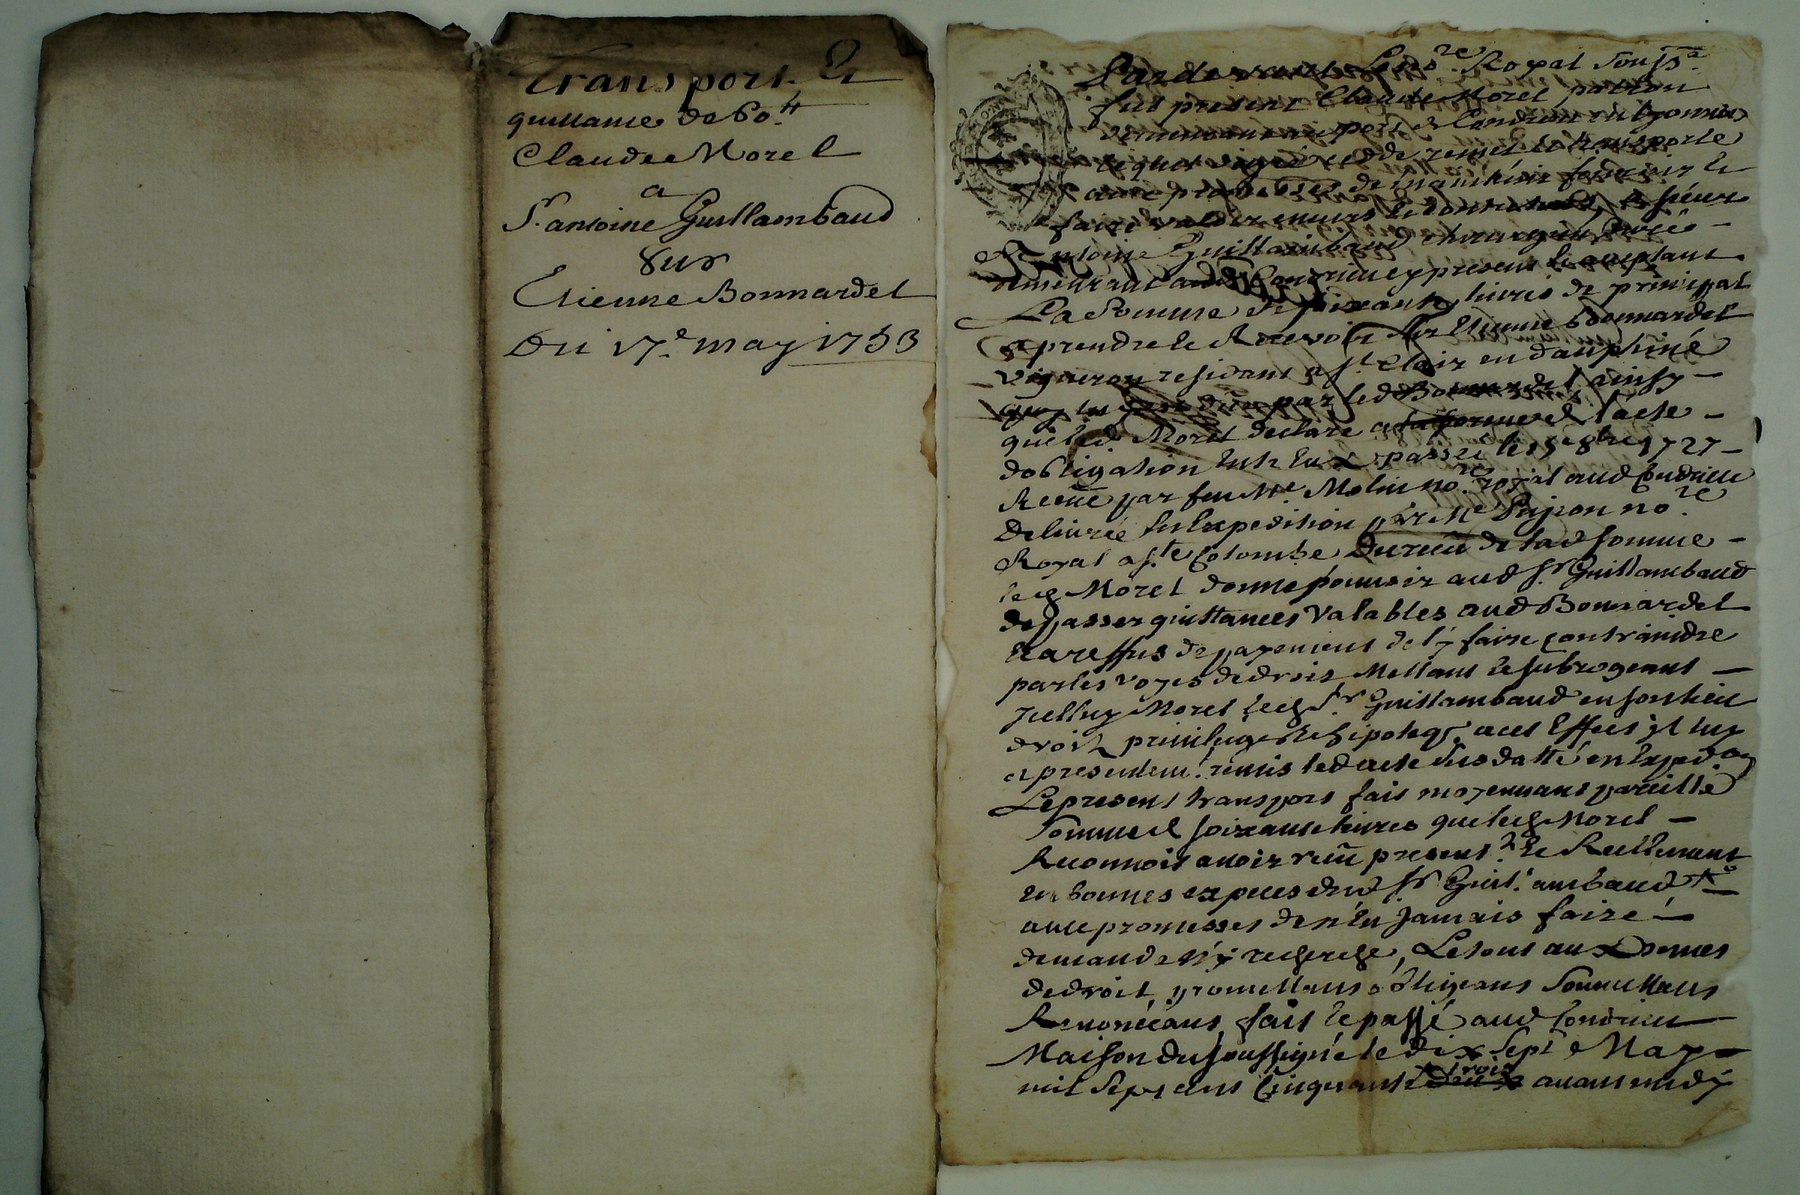 Transport &
quittance de 60ᵗᵗ
Claude Morel
a
Sʳ antoine Guillambaud
Sur
Etienne Bonnardel
Du 17ᵉ may 1753
Pardevant le noʳᵉ Royal soussⁿᵉ
fut présent Claude Morel patron
demeurant au port de Condrieu en lyonnois
lequel cedde remet & transporte
avec promesses de maintenir fournir &
faire valoir envers & contre tous, a sieur
Antoine Guillambaud chirurgien Juré
demeurant aud Condrieu cy present & acceptant
La Somme de soixante livres de principal
a prendre & Recevoir sur Etienne Bonnardel
vigneron residant a sᵗ Clair en dauphiné
par led Bonnardel ainsy
que led Morel declare a la forme de l'acte
dobligation entre Eux passée le 15 8bre 1727
Receüe par feu Mᵉ Molin noʳᵉ royal aud Condrieu
Delivrée En Expedition par Mᵉ noʳᵉ
Royal a sᵗᵉ Colombe du receu de lad somme
led Morel donne pouvoir aud sʳ Guillambaud
de passer quittances valables aud Bonnardel
& a reffus de payement de l'y faire contraindre
par les voyes de droit Mettant & subrogeant
Icelluy Morel led sʳ Guillambaud en son lieu
droit privilege & hipoteq. a cet Effet Il luy
a presentemᵗ remis led acte sus datté en Expedᵒⁿ
Le present transport fait moyennant pareille
somme de soixante livres que led Morel
Reconnoit avoir receu presentᵗ & Reellement
en bonnes especes dud sʳ Guillambaud
avec promesses de n'en Jamais faire
demande n'y recherche, Le tout aux
de droit, promettans obligeans soumettans
Renonceans, fait & passé aud Condrieu
Maison du soussigné le dix sept May
mil sept cent Cinquante deux trois avant midy